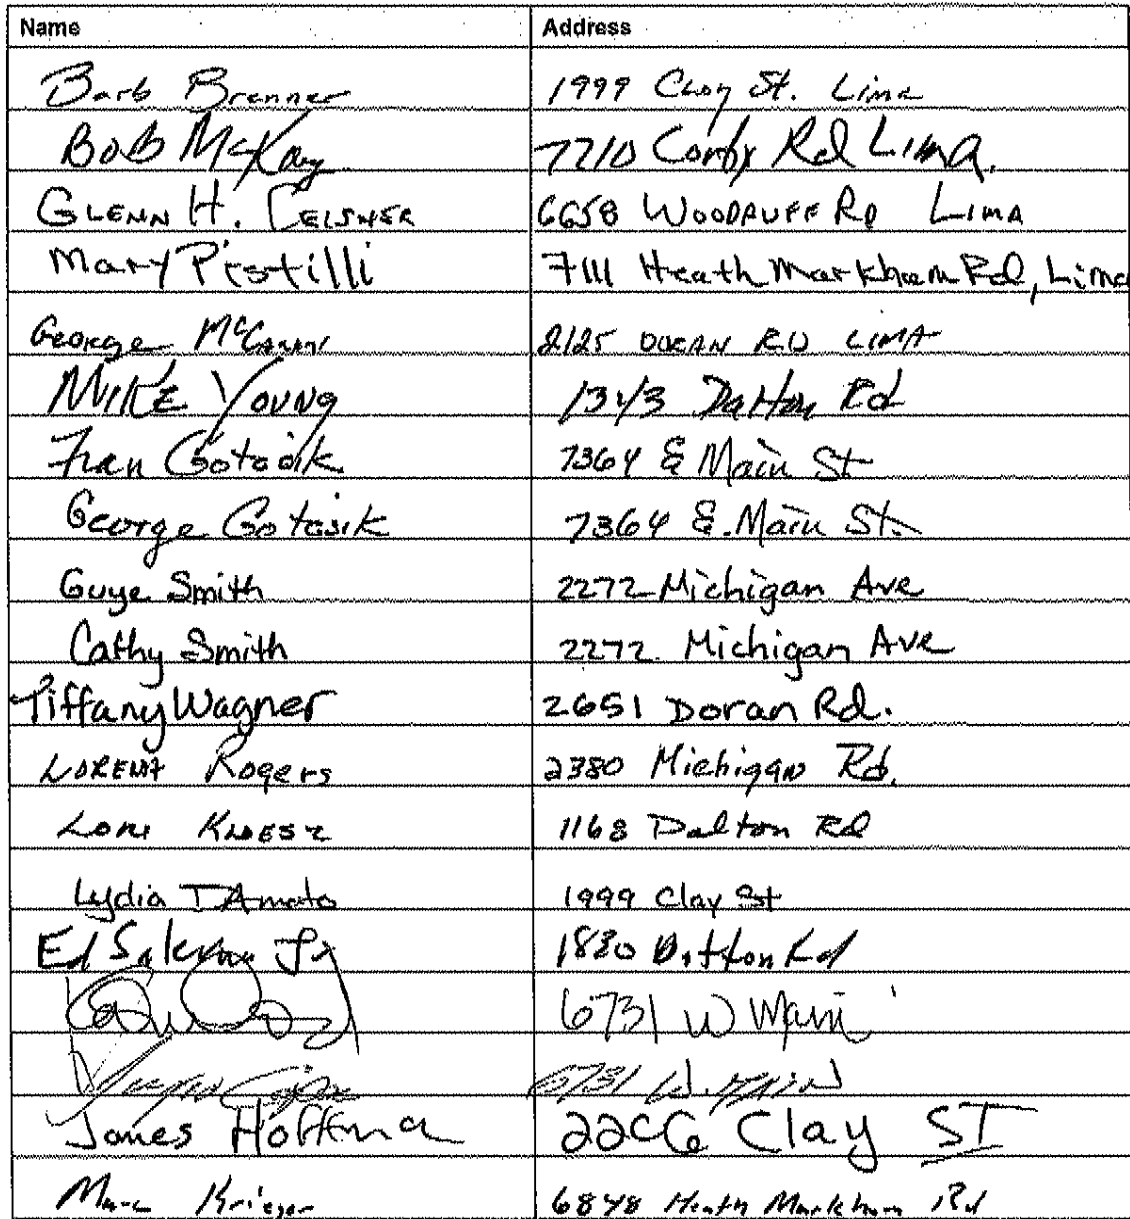 Name Address
Barb Brenner 1999 Clay St. Lima
Bob McKay 7710 Corby Rd Lima.
GLENN H. 6658 WOODRUFF RD LIMA
Mary Pistilli 7111 Heath Markham Rd, Lima
George 2125 DORAN RD LIMA
MIKE YOUNG 1343 Dalton Rd
Fran Gotcsik 7364 E Main St
George Gotcsik 7364 E. Main St.
Guye Smith 2272 Michigan Ave
Cathy Smith 2272 Michigan Ave
Tiffany Wagner 2651 Doran Rd.
Rogers 2380 Michigan Rd.
LORI 1168 Dalton Rd
Lydia D'Amato 1999 Clay St
Ed Salerno Jr 1830 Dalton Rd
6731 W Main
6731 W. MAIN
James Hoffman Clay ST
Marc Krieger 6848 Heath Markham Rd